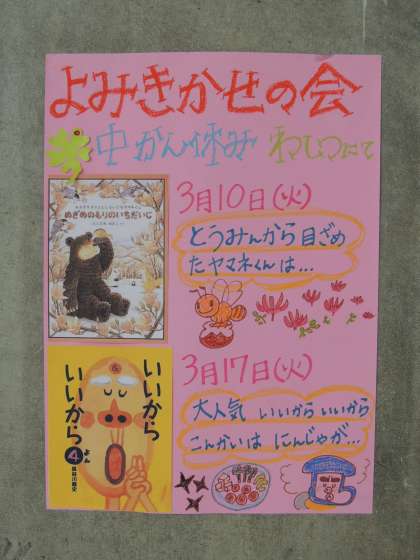 よみきかせの会
中かん休み わしつにて
3月10日(火)
とうみんから目ざめ
たヤマネくんは…
めざめのもりのいちだいじ
3月17日(火)
大人気 いいから いいから
こんかいは にんじゃが…
いいから
いいから
4
長谷川義史